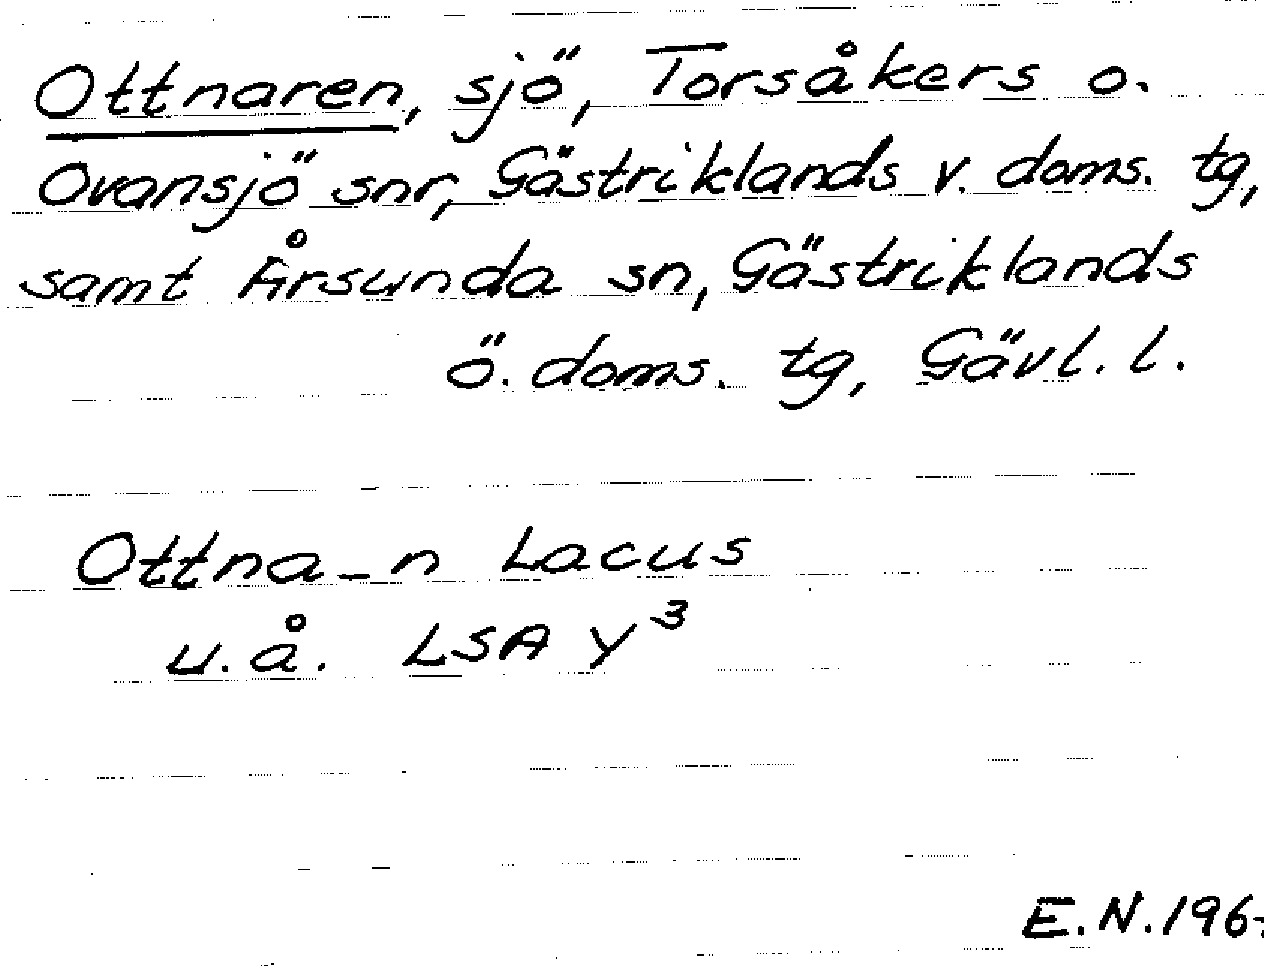 Ottnaren, sjö, Torsåkers o.
Ovansjö snr, Gästriklands v. doms. tg,
samt Årsunda sn, Gästriklands
ö. doms. tg, Gävl. l.
Ottna-n Lacus
u.å. LSA Y³
E.N. 196